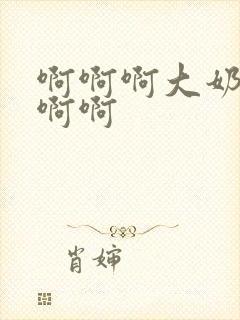 啊啊啊大奶
啊啊
肖婶